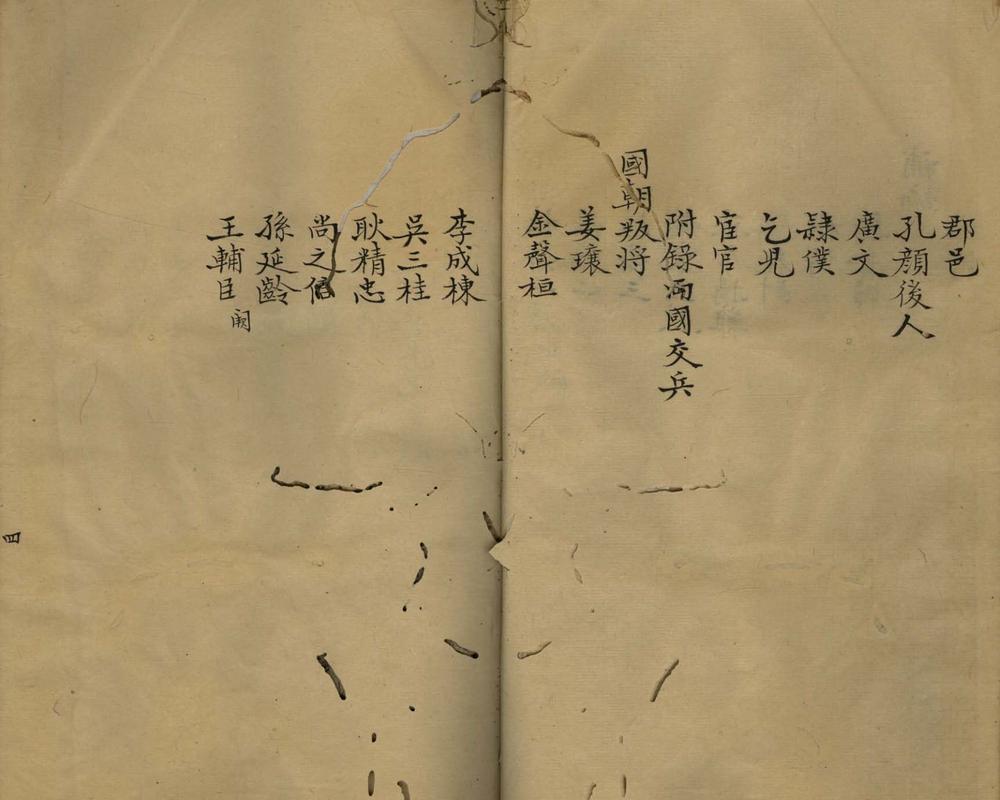 郡邑
孔顔後人
廣文
隸僕
乞児
宦官
附錄兩國交兵
國朝叛将
姜瓖
金聲桓
李成棟
吳三桂
耿精忠
尚之信
孫延齡
王輔臣 闕
四